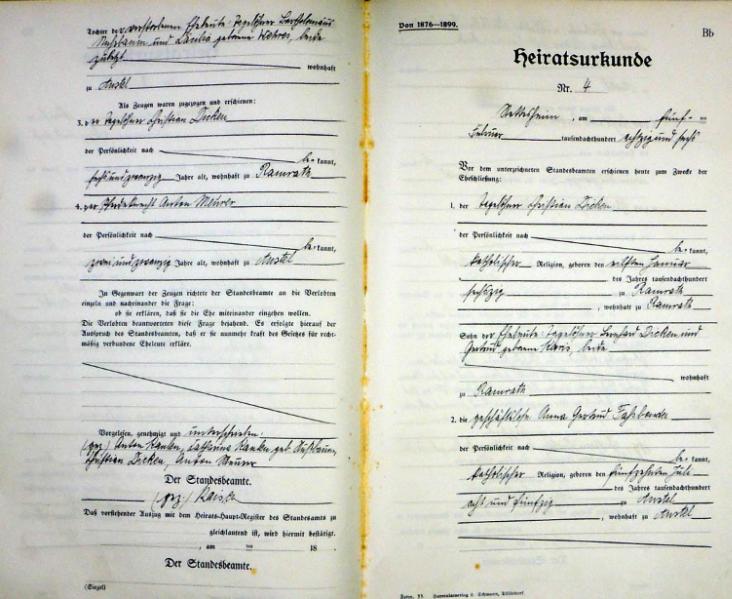 Tochter der verstorbenen Eheleute: Tagelöhner Bartholomäus
Nußbaum und Cäcilia geborene Köhres, beide
zuletzt
wohnhaft
zu Anstel
Als Zeugen waren zugezogen und erschienen:
3. der Tagelöhner Christian Dicken
der Persönlichkeit nach
be kannt,
sechsundzwanzig Jahre alt, wohnhaft zu Ramrath
4. der Pferdeknecht Anton Meurer
der Persönlichkeit nach
be kannt,
zweiundzwanzig Jahre alt, wohnhaft zu Anstel
In Gegenwart der Zeugen richtete der Standesbeamte an die Verlobten
einzeln und nacheinander die Frage:
ob sie erklären, daß sie die Ehe miteinander eingehen wollen.
Die Verlobten beantworteten diese Frage bejahend. Es erfolgte hierauf der
Ausspruch des Standesbeamten, daß er sie nunmehr kraft des Gesetzes für recht-
mäßig verbundene Eheleute erkläre.
Vorgelesen, genehmigt und unterschrieben:
(gez) Anton Kanken, Catharina Kanken geb. Nußbaum,
Christian Dicken, Anton Meurer
Der Standesbeamte.
(gez)
Daß vorstehender Auszug mit dem Heirats-Haupt-Register des Standesamts zu
gleichlautend ist, wird hiermit bestätigt.
, am 18
Der Standesbeamte.
(Siegel)
Von 1876—1899.
Bb
Heiratsurkunde
Nr. 4
, am fünf-
Februar tausendachthundert achtzig und sechs
Vor dem unterzeichneten Standesbeamten erschienen heute zum Zwecke der
Eheschließung:
1. der Tagelöhner Christian Dicken
der Persönlichkeit nach
be kannt,
katholischer Religion, geboren den elften Januar
des Jahres tausendachthundert
sechszig zu Ramrath
, wohnhaft zu Ramrath
Sohn der Eheleute: Tagelöhner Bernhard Dicken und
Gertrud geborene, beide
wohnhaft
zu Ramrath
2. die geschäftslose Anna Gertrud Faßbender
der Persönlichkeit nach
be kannt,
katholischer Religion, geboren den fünfzehnten Juli
des Jahres tausendachthundert
acht und fünfzig zu Anstel
, wohnhaft zu Anstel